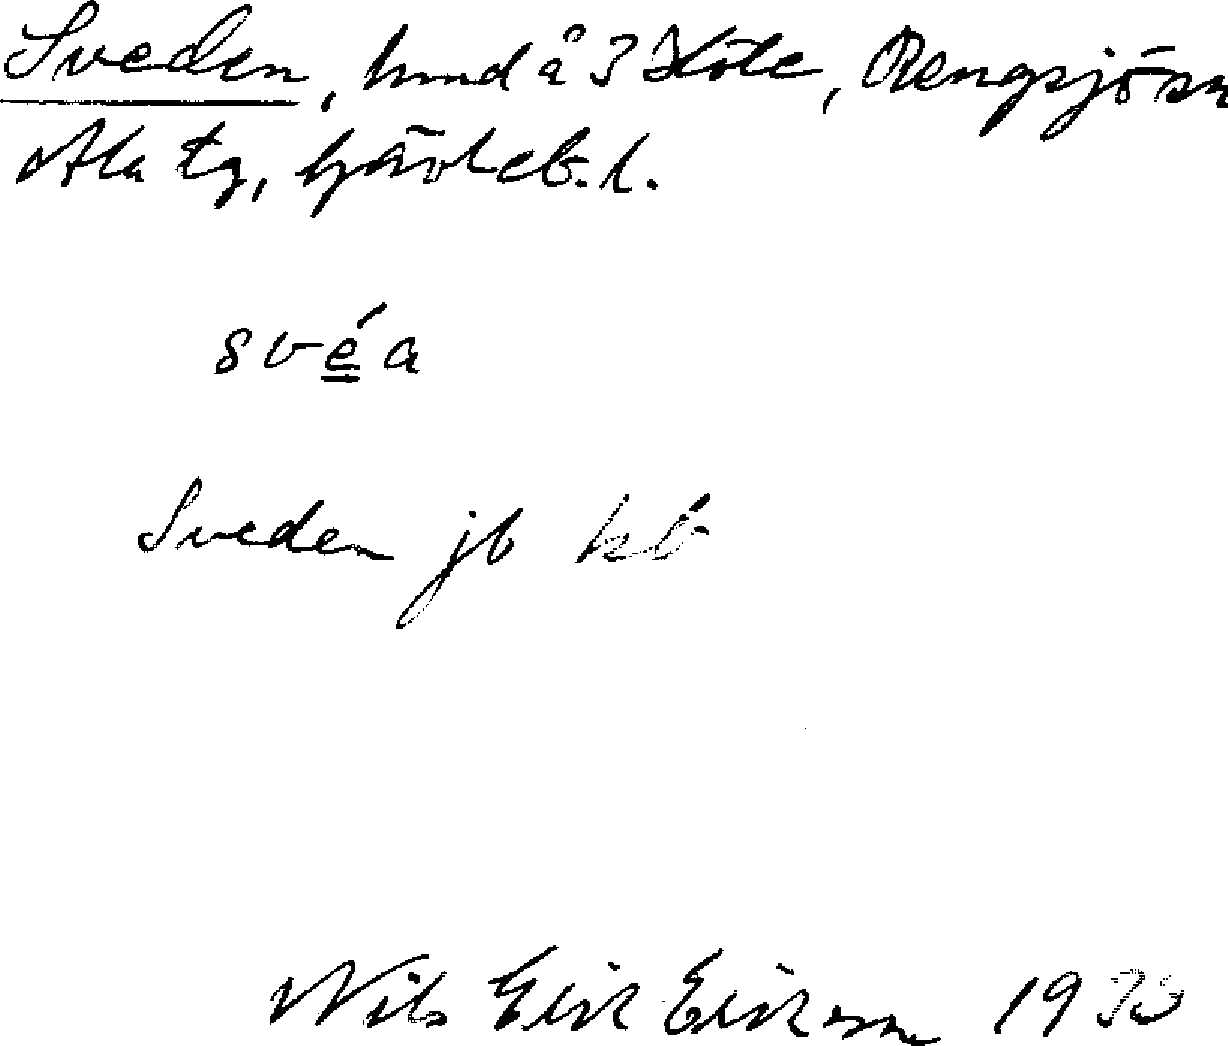 Sveden, hmd å 3 Höle, Rengsjö sn
Ala tg, Gävleb. l.
svéa
Sveden jb kb
Nils Erik Eriksson 19